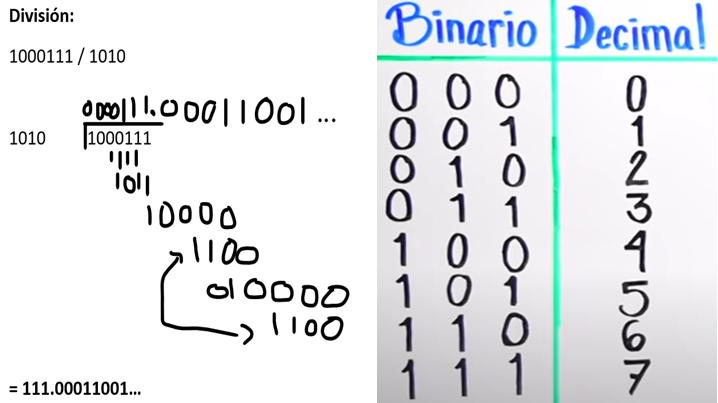 División:
1000111 / 1010
0000111.00011001...
1010 1000111
1111
1011
10000
1100
010000
1100
= 111.00011001...
Binario Decimal
0 0 0 0
0 0 1 1
0 1 0 2
0 1 1 3
1 0 0 4
1 0 1 5
1 1 0 6
1 1 1 7